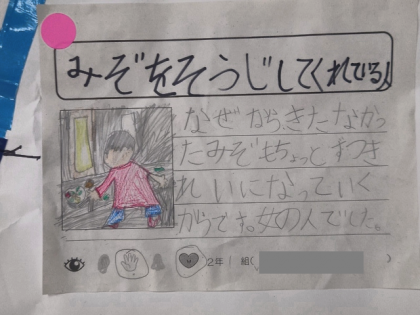 みぞをそうじしてくれている人
なぜなら、きたなかっ
たみぞもちょっとずつき
れいになっていく
からです。女の人でした。
2年 組( )